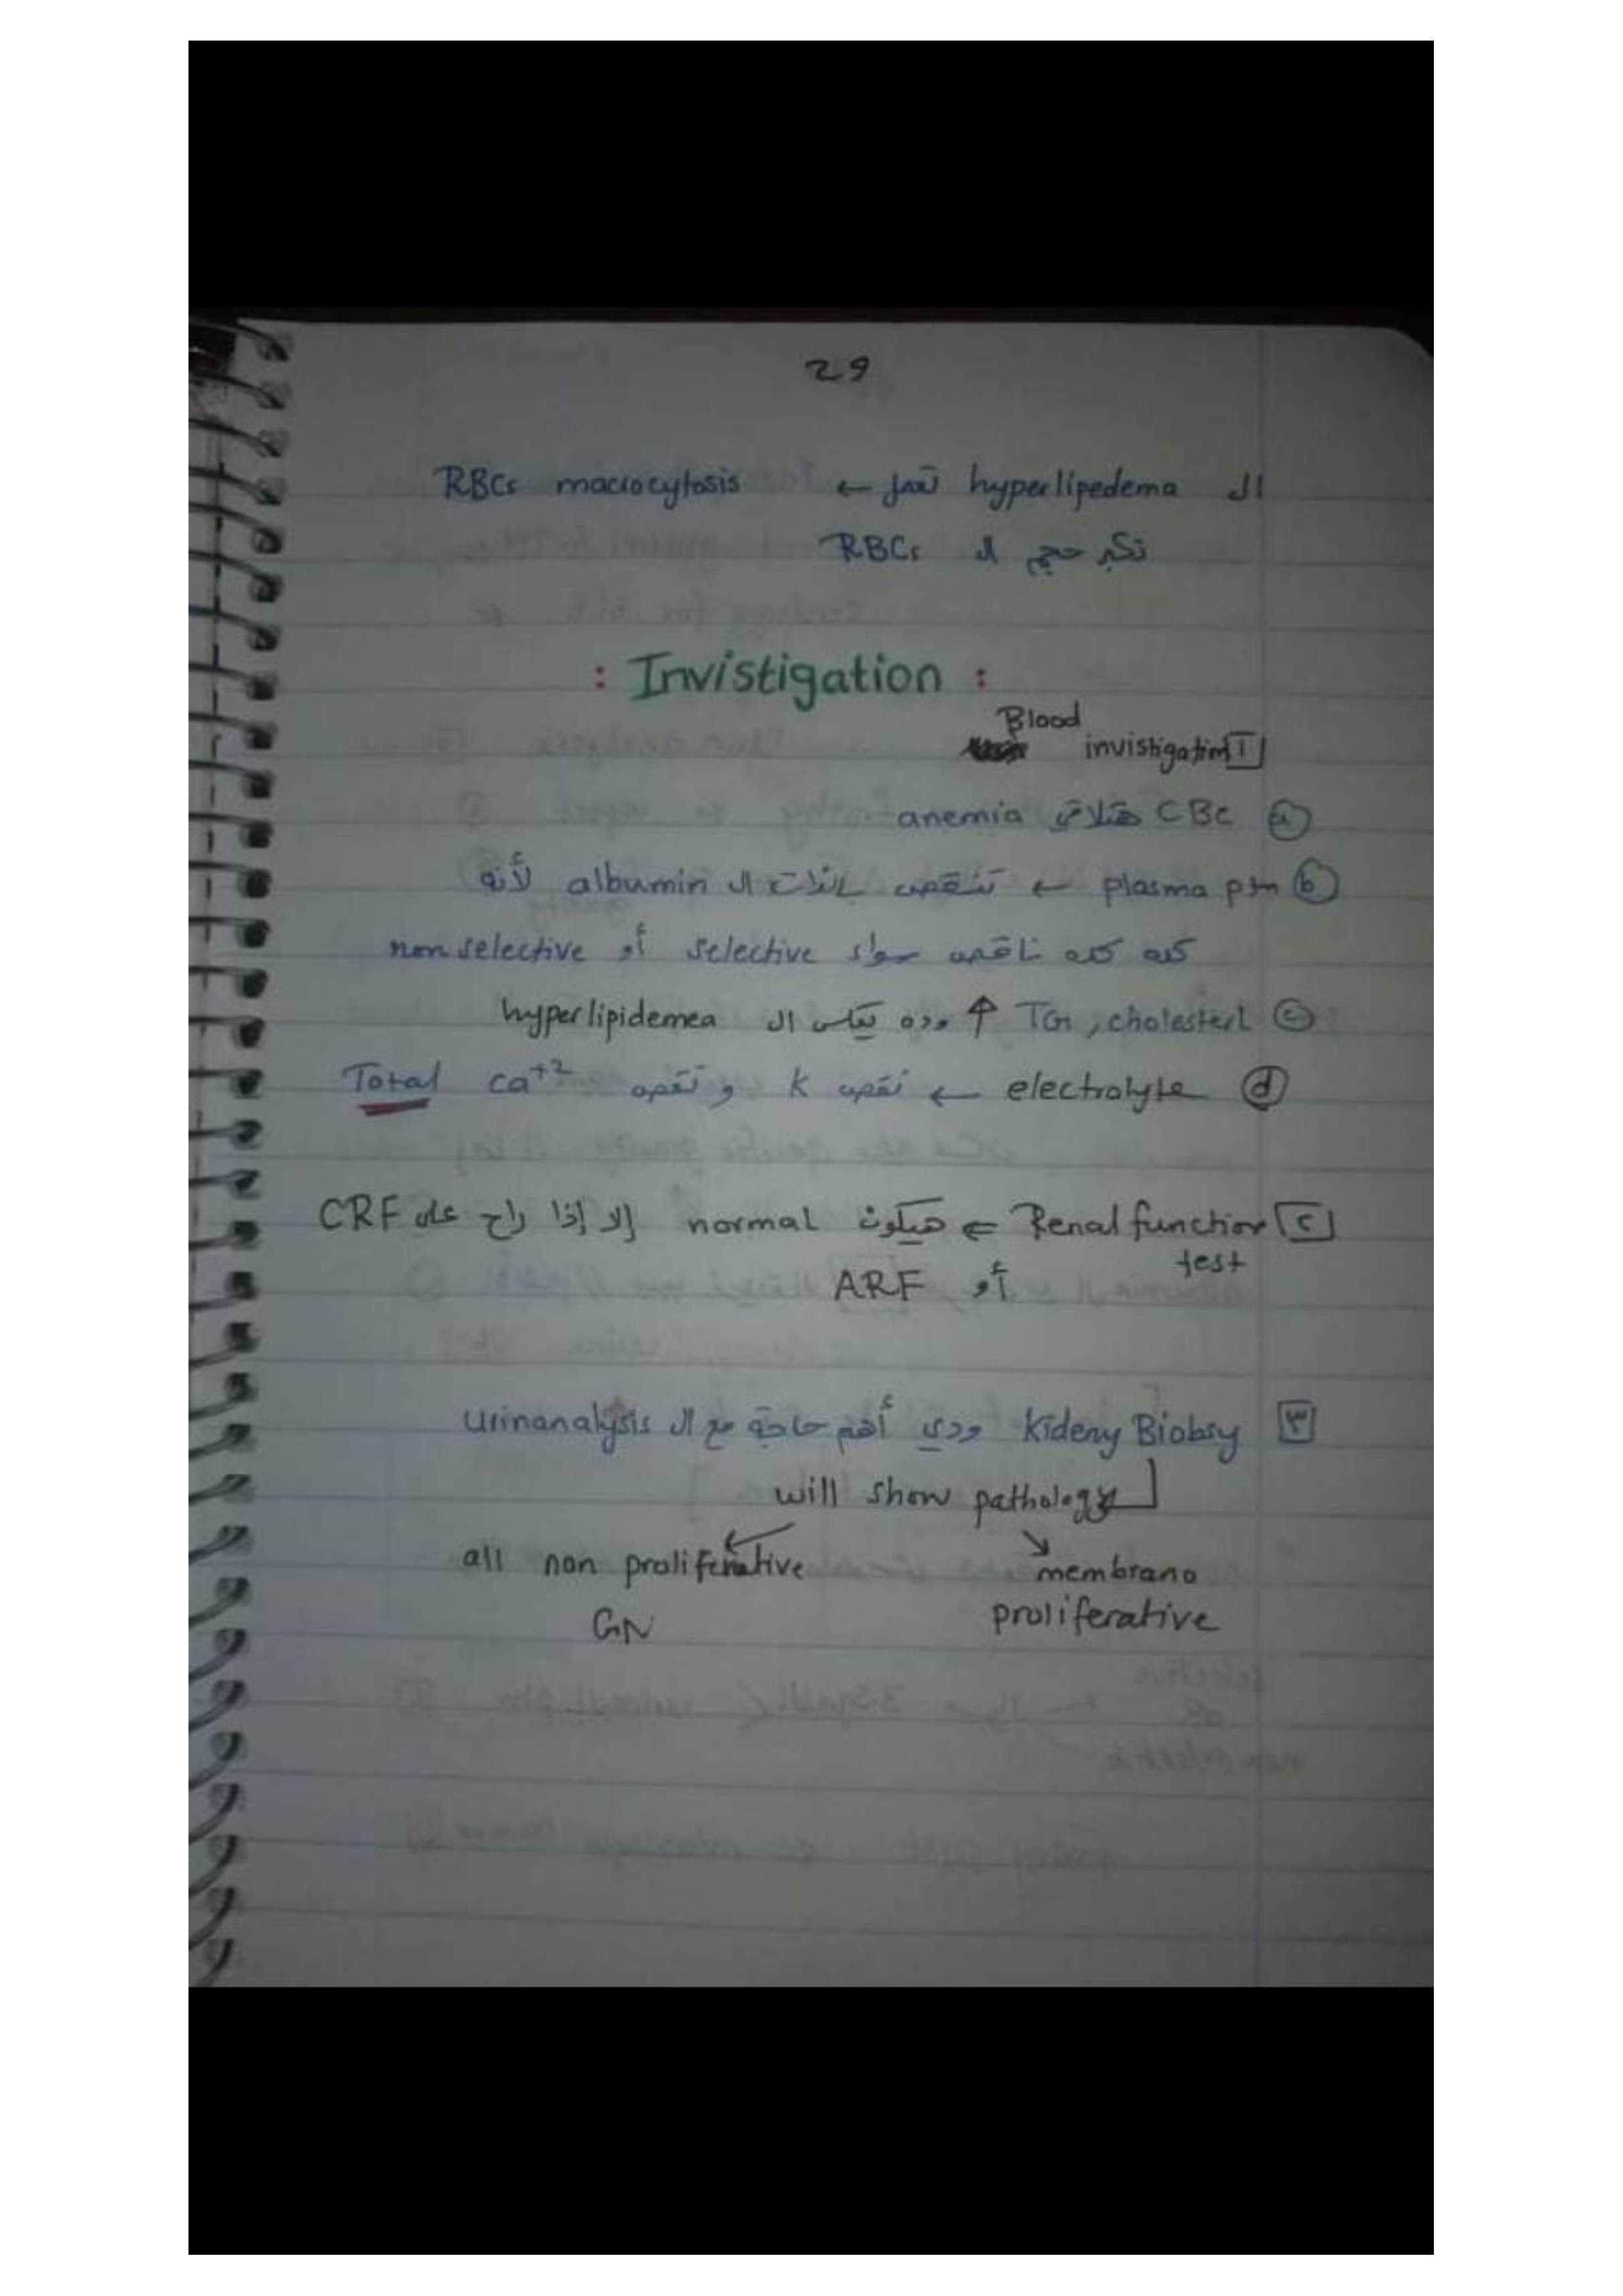 29
ال hyperlipedema تعمل ← RBCs macrocytosis
تكبر حجم ال RBCs
: Invistigation :
Blood
١ invistigation
a CBc هتلاقى anemia
b plasma ptn ← تنقص بالذات ال albumin لأنه
كده كده ناقص سواء selective أو non selective
c TG, cholesterl ↑ وده يعكس ال hyperlipidemea
d electrolyte ← نقص k و نقص ca+2 Total
٢ Renal function ← هيكون normal إلا إذا راح على CRF
test
أو ARF
٣ Kideny Biobsy ودي أهم حاجة مع ال urinanalysis
will show pathology
all non proliferative
membrano
GN
proliferative